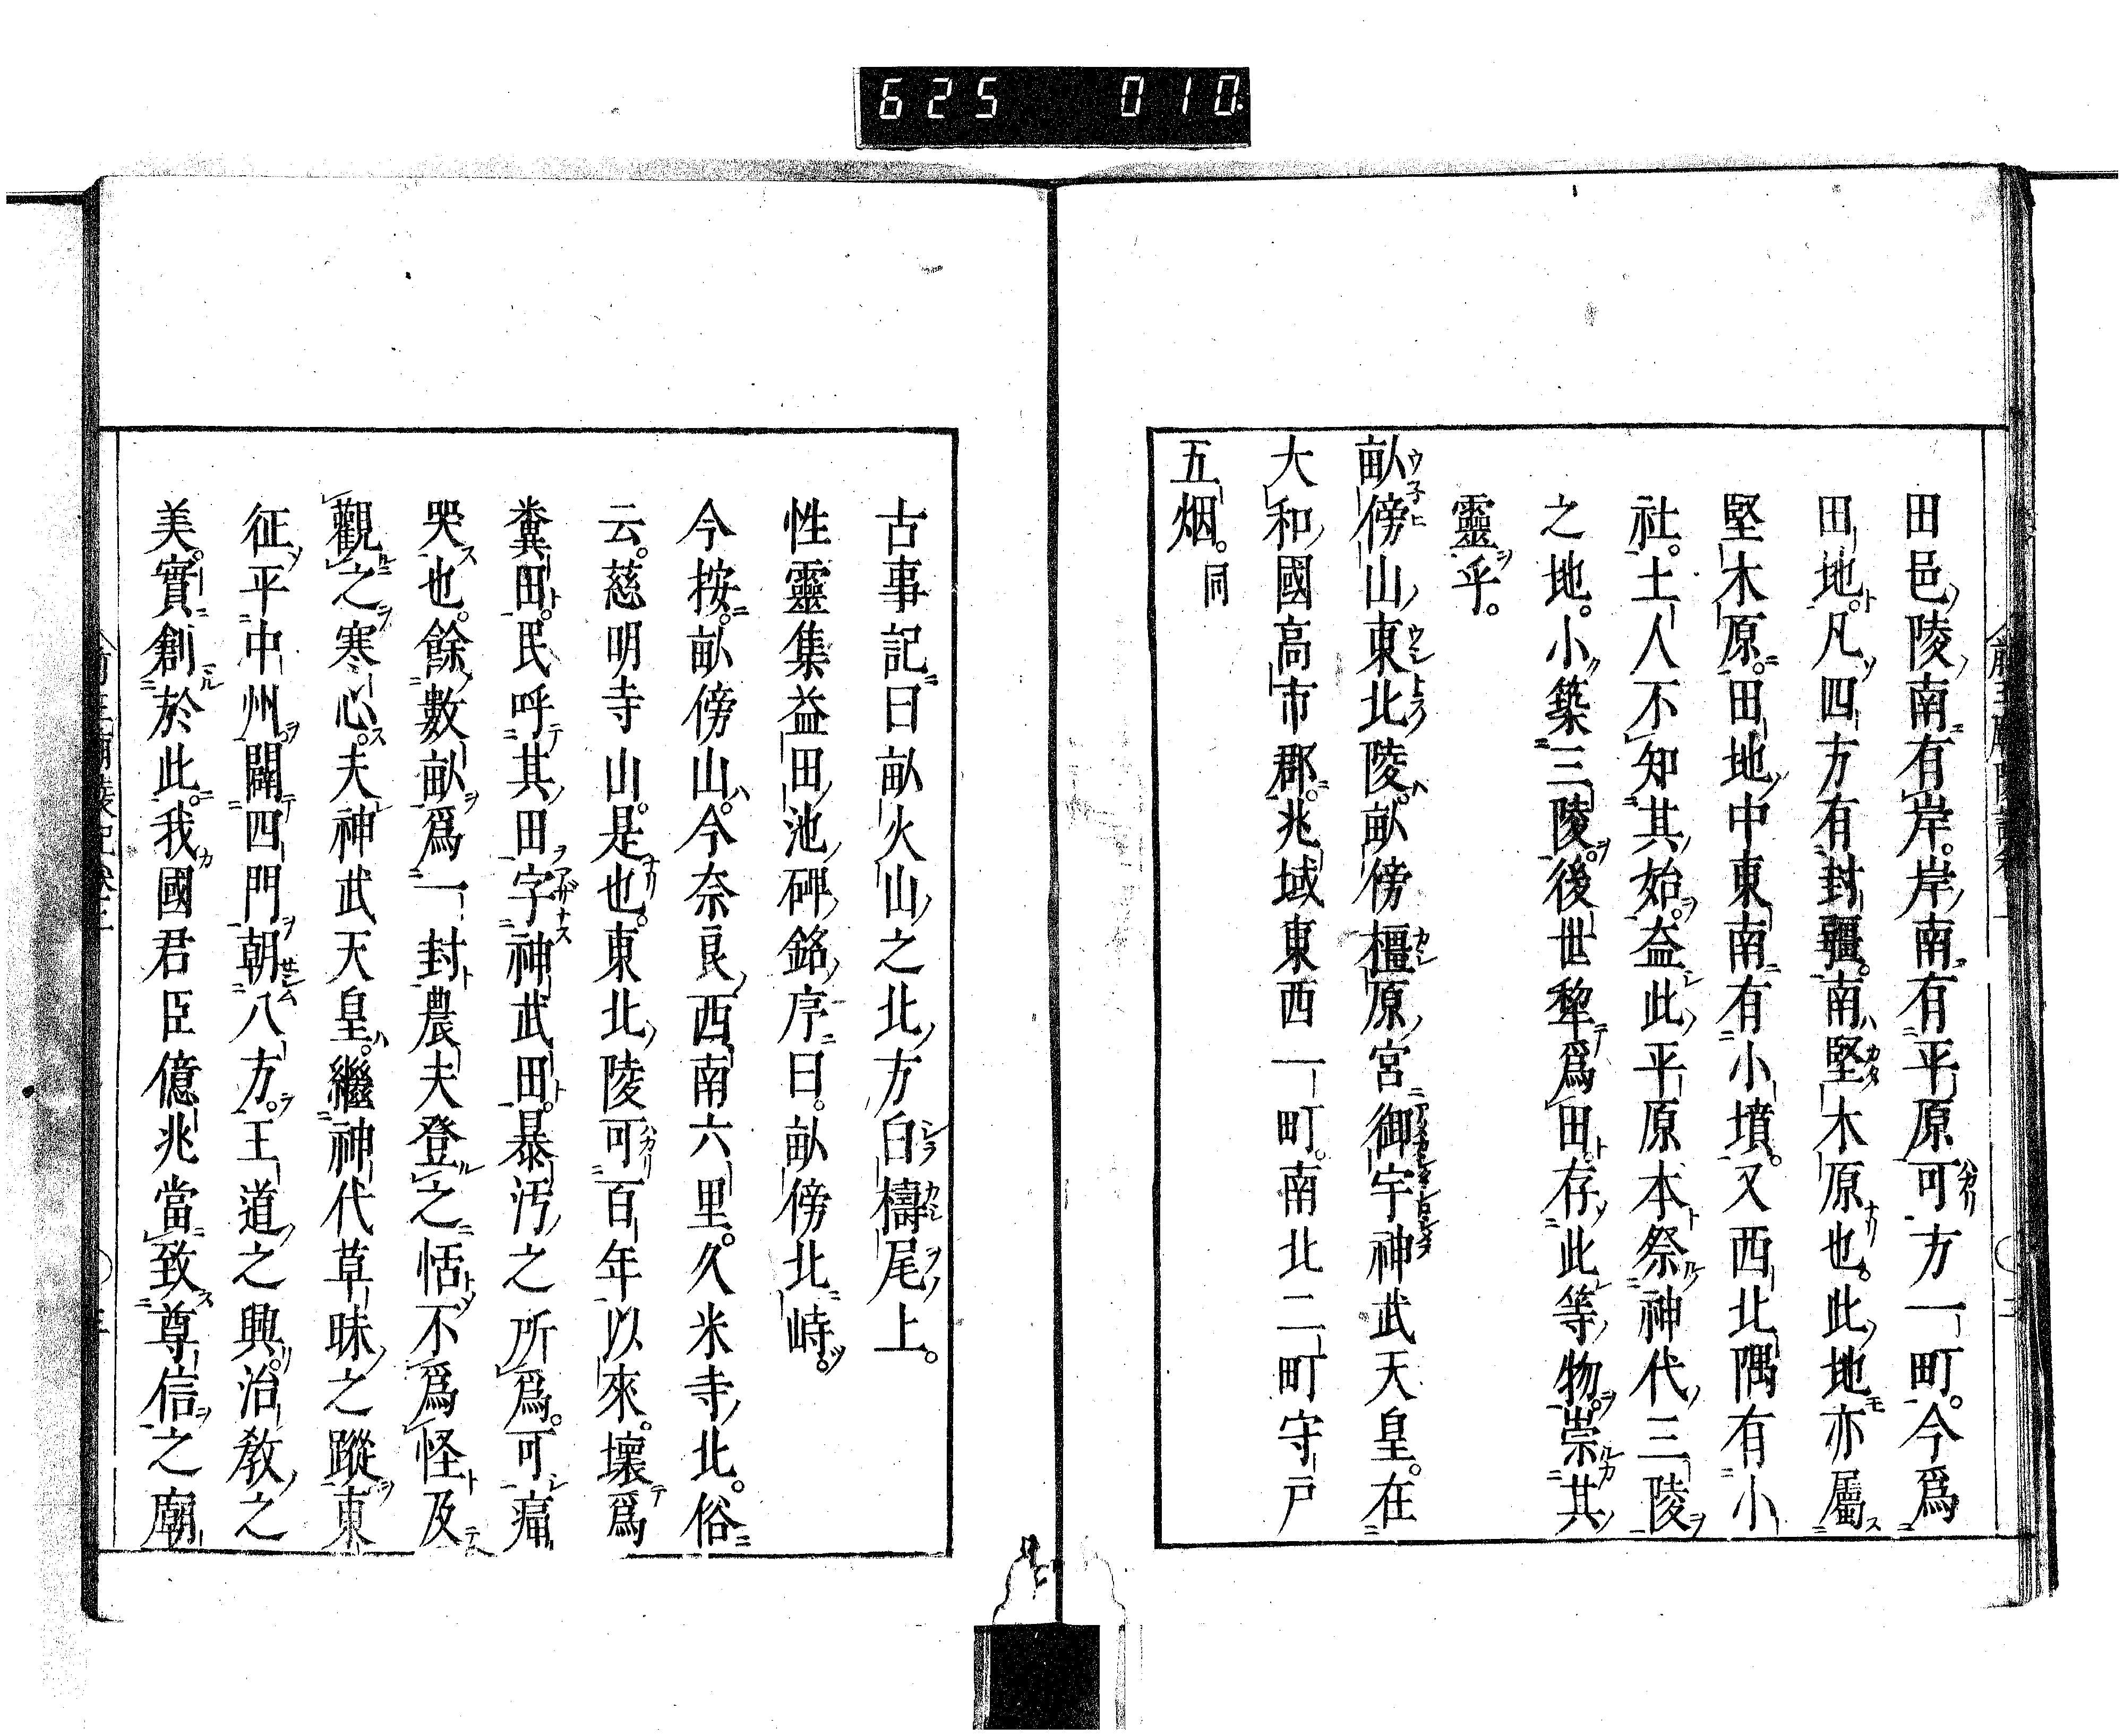 625 010
田邑陵南有岸。岸南有平原可方一町。今爲
田地。凡四方有封疆。南堅木原也。此地亦屬
堅木原。田地中東南有小墳。又西北隅有小
社。土人不知其始。益此平原本祭神代三陵
之地。小築三陵。後世犂爲田。存此等物。崇其
靈乎。
畝傍山東北陵。畝傍橿原宮御宇神武天皇。在
大和國高市郡。兆域東西一町。南北二町守戸
五烟。同
古事記曰畝火山之北方白檮尾上。
性靈集益田池碑銘序曰。畝傍北峙。
今按。畝傍山。今奈良西南六里。久米寺北。俗
云。慈明寺山。是也。東北陵可百年以來。壞爲
糞田。民呼其田字神武田。暴汚之所爲。可痛
哭也。餘數畝爲一封農夫登之恬不爲怪及
觀之寒心。夫神武天皇。繼神代草昧之蹤東
征平中州。闢四門朝八方。王道之興。治教之
美。實創於此。我國君臣億兆當致尊信之廟